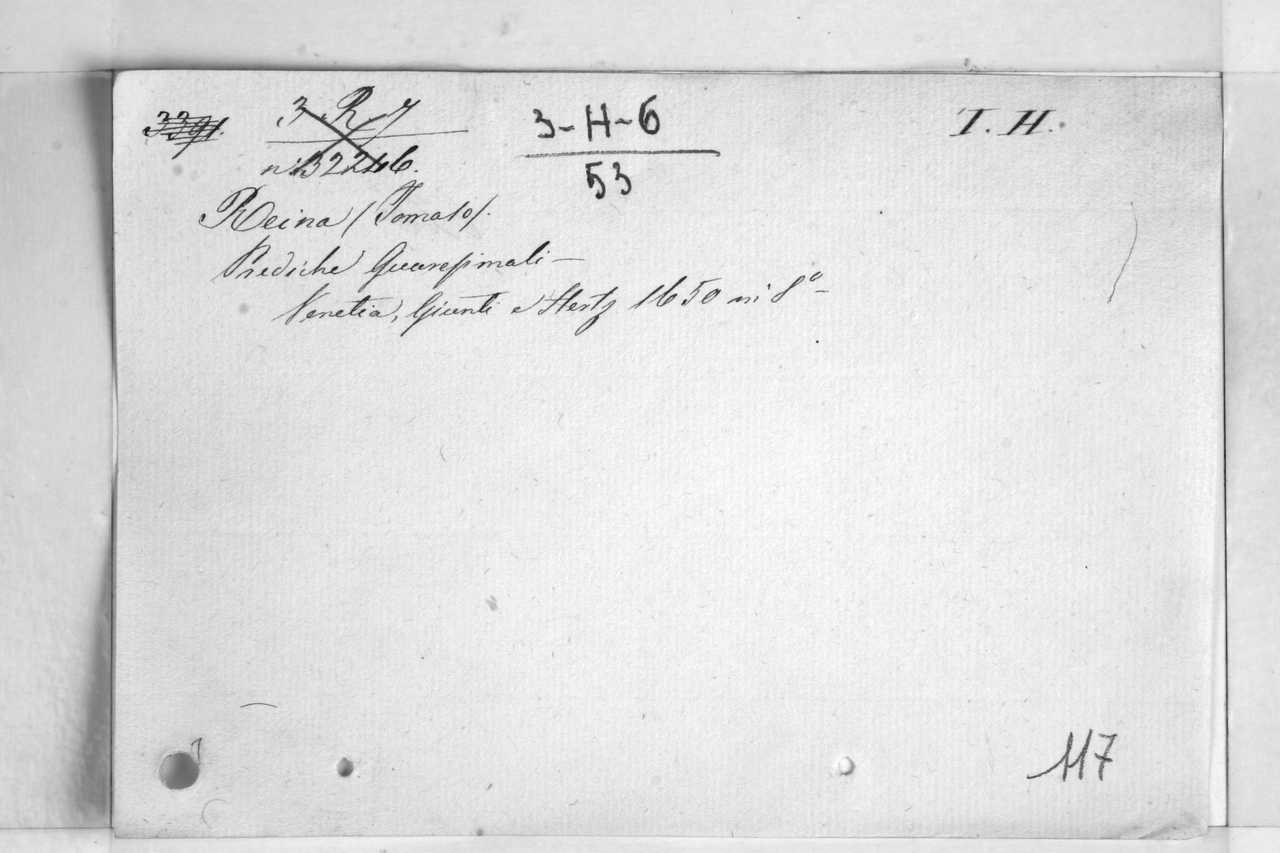 3391.
3 R 7
3-H-6
T. H.
53
Reina (Tomaso).
Prediche Quaresimali —
Venetia, Giunti e Hertz 1650 in 8º —
117